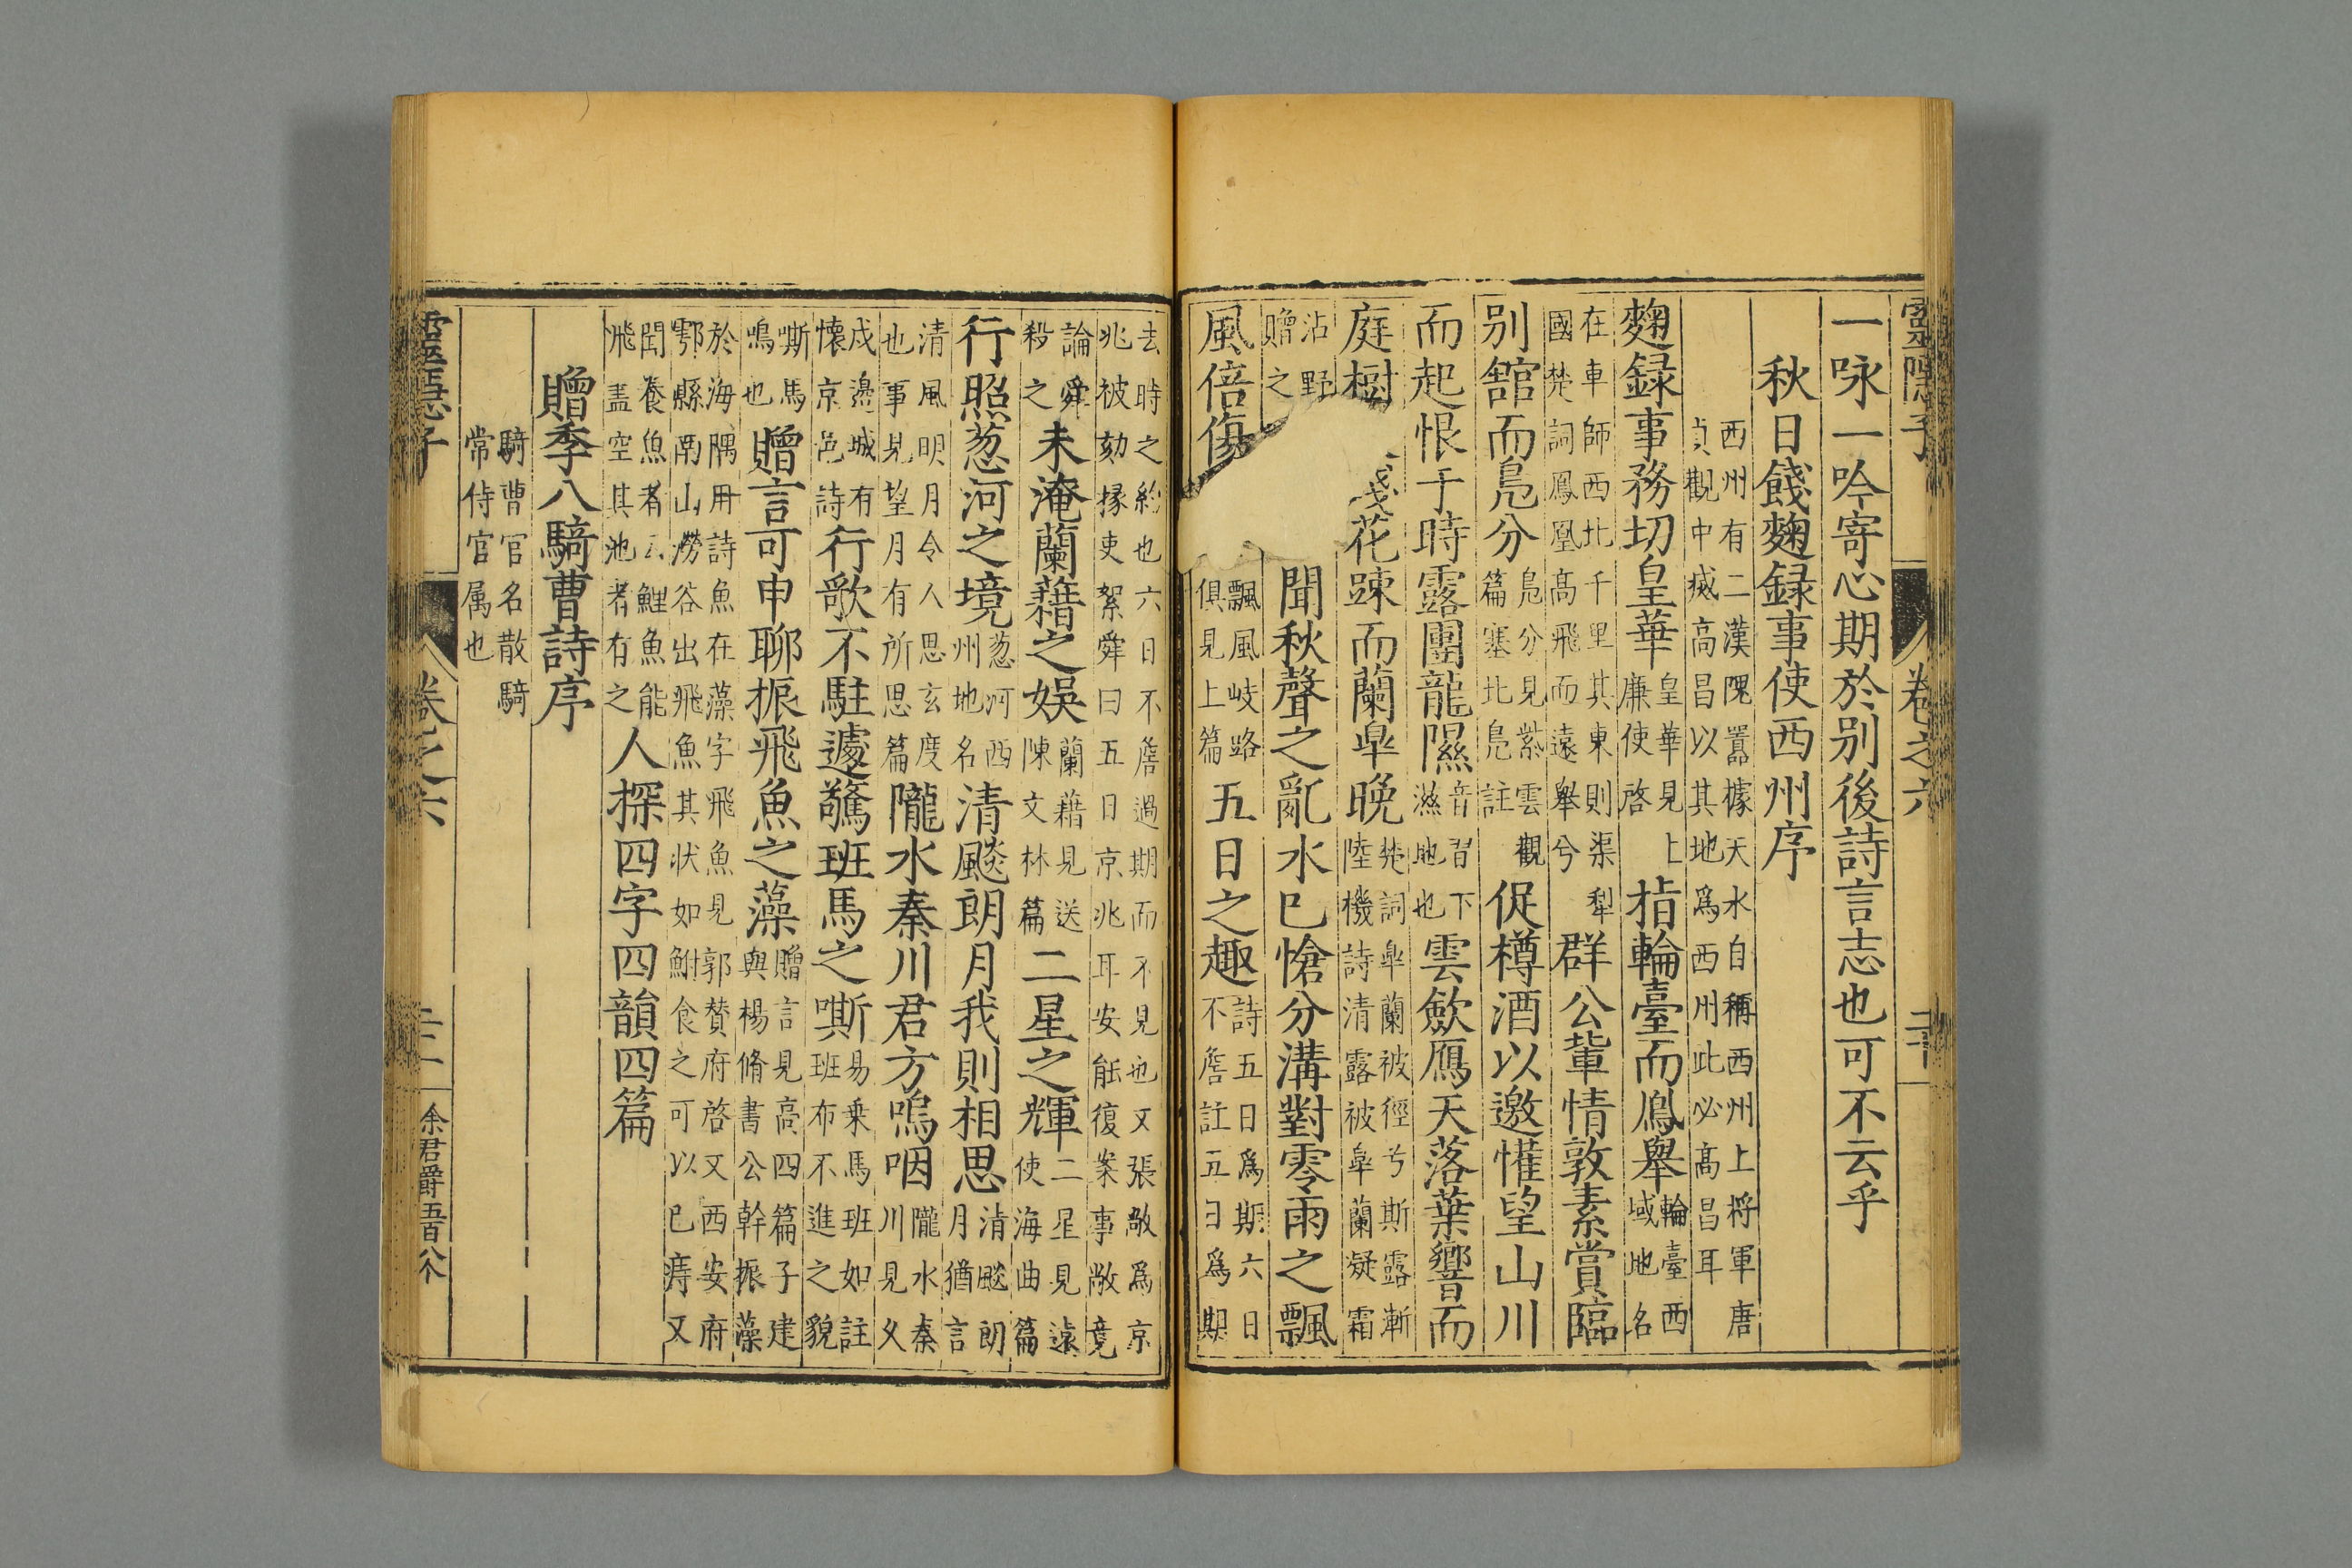 靈隱子
卷之六
一咏一吟寄心期於別後詩言志也可不云乎
秋日餞麴録事使西州序
西州有二漢隗囂據天水自稱西州上將軍唐
貞觀中滅高昌以其地爲西州此必高昌耳
麴録事務切皇華
皇華見上
廉使啓
指輪臺而鳳舉
輪臺西
域地名
在車師西北千里其東則渠犁
國楚詞鳳凰高飛而遠舉兮
群公軰情敦素賞臨
别舘而鳧分
鳧分見紫雲觀
篇塞北鳧註
促樽酒以邀懽望山川
而起恨于時露團龍隰
音習下
濕地也
雲歛鴈天落葉響而
庭樹
殘花踈而蘭臯晚
楚詞臯蘭被徑兮斯露漸
陸機詩清露被臯蘭凝霜
沾野
贈之
聞秋聲之亂水巳愴分溝對零雨之飄
風倍傷
飄風岐路
俱見上篇
五日之趣
詩五日爲期六日
不詹註五日爲期
去時之約也六日不詹過期而不見也又張敞爲京
兆被劾掾吏絮舜曰五日京兆耳安能復案事敞竟
論舜
殺之
未淹蘭藉之娛
蘭藉見送
陳文林篇
二星之輝
二星見遠
使海曲篇
行照葱河之境
葱河西
州地名
清飈朗月我則相思
清飈朗
月猶言
清風明月令人思玄度
也事見望月有所思篇
隴水秦川君方嗚咽
隴水秦
川見乂
戍邊城有
懷京邑詩
行歌不駐遽驚班馬之嘶
易乗馬班如註
班布不進之貌
嘶馬
鳴也
贈言可申聊振飛魚之藻
贈言見高四篇子建
與楊脩書公幹振藻
於海隅毌詩魚在藻字飛魚見郭賛府啓又西安府
鄠縣南山澇谷出飛魚其状如鮒食之可以已痔又
聞養魚者云鯉魚能
飛盖空其池者有之
人探四字四韻四篇
贈季八騎曹詩序
騎曹官名散騎
常侍官属也
靈隱子
卷之六
余君爵五百八个